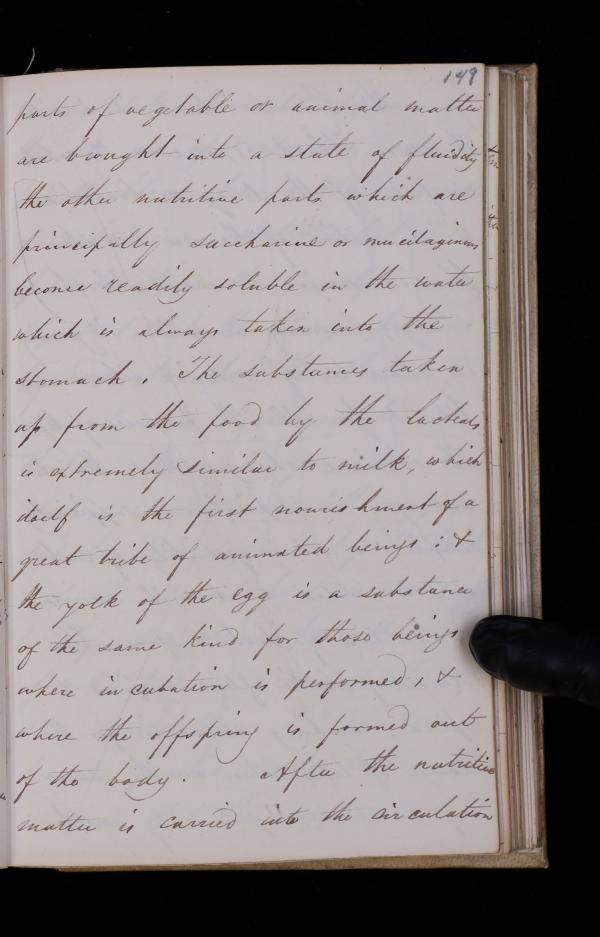 149
parts of vegetable or animal matter
are brought into a state of fluidity
the other nutritive parts which are
principally saccharine or mucilaginous
become readily soluble in the water
which is always taken into the
stomach. The substances taken
up from the food by the lacteals
is extremely similar to milk, which
itself is the first nourishment of a
great tribe of animated beings: &
the yolk of the egg is a substance
of the same kind for those beings
where incubation is performed, &
where the offspring is formed out
of the body. After the nutritive
matter is carried into the circulation